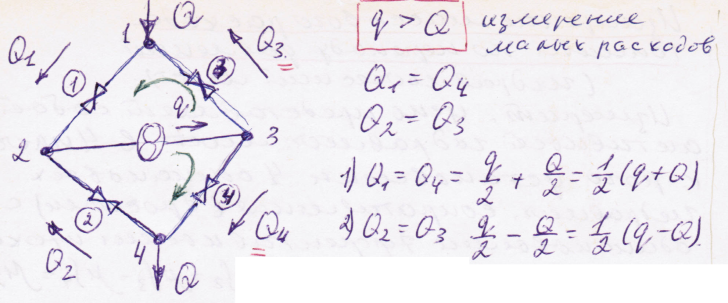 Q
1
Q₁
Q₃
1
3
q
8
2
3
2
4
Q₂
Q₄
4
Q
q > Q измерение
малых расходов
Q₁ = Q₄
Q₂ = Q₃
1) Q₁ = Q₄ = q/2 + Q/2 = 1/2 (q+Q)
2) Q₂ = Q₃ q/2 − Q/2 = 1/2 (q−Q)